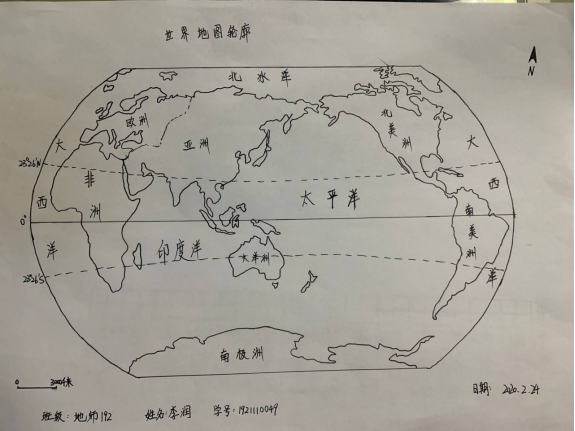 世界地图轮廓
N
北冰洋
欧洲
亚洲
北美洲
大西洋
大西洋
23°26'N
非洲
太平洋
0°
南美洲
印度洋
大洋洲
23°26'S
南极洲
0 3000千米
日期: 2020.2.24
班级: 地师192 姓名: 李润 学号: 1921110049